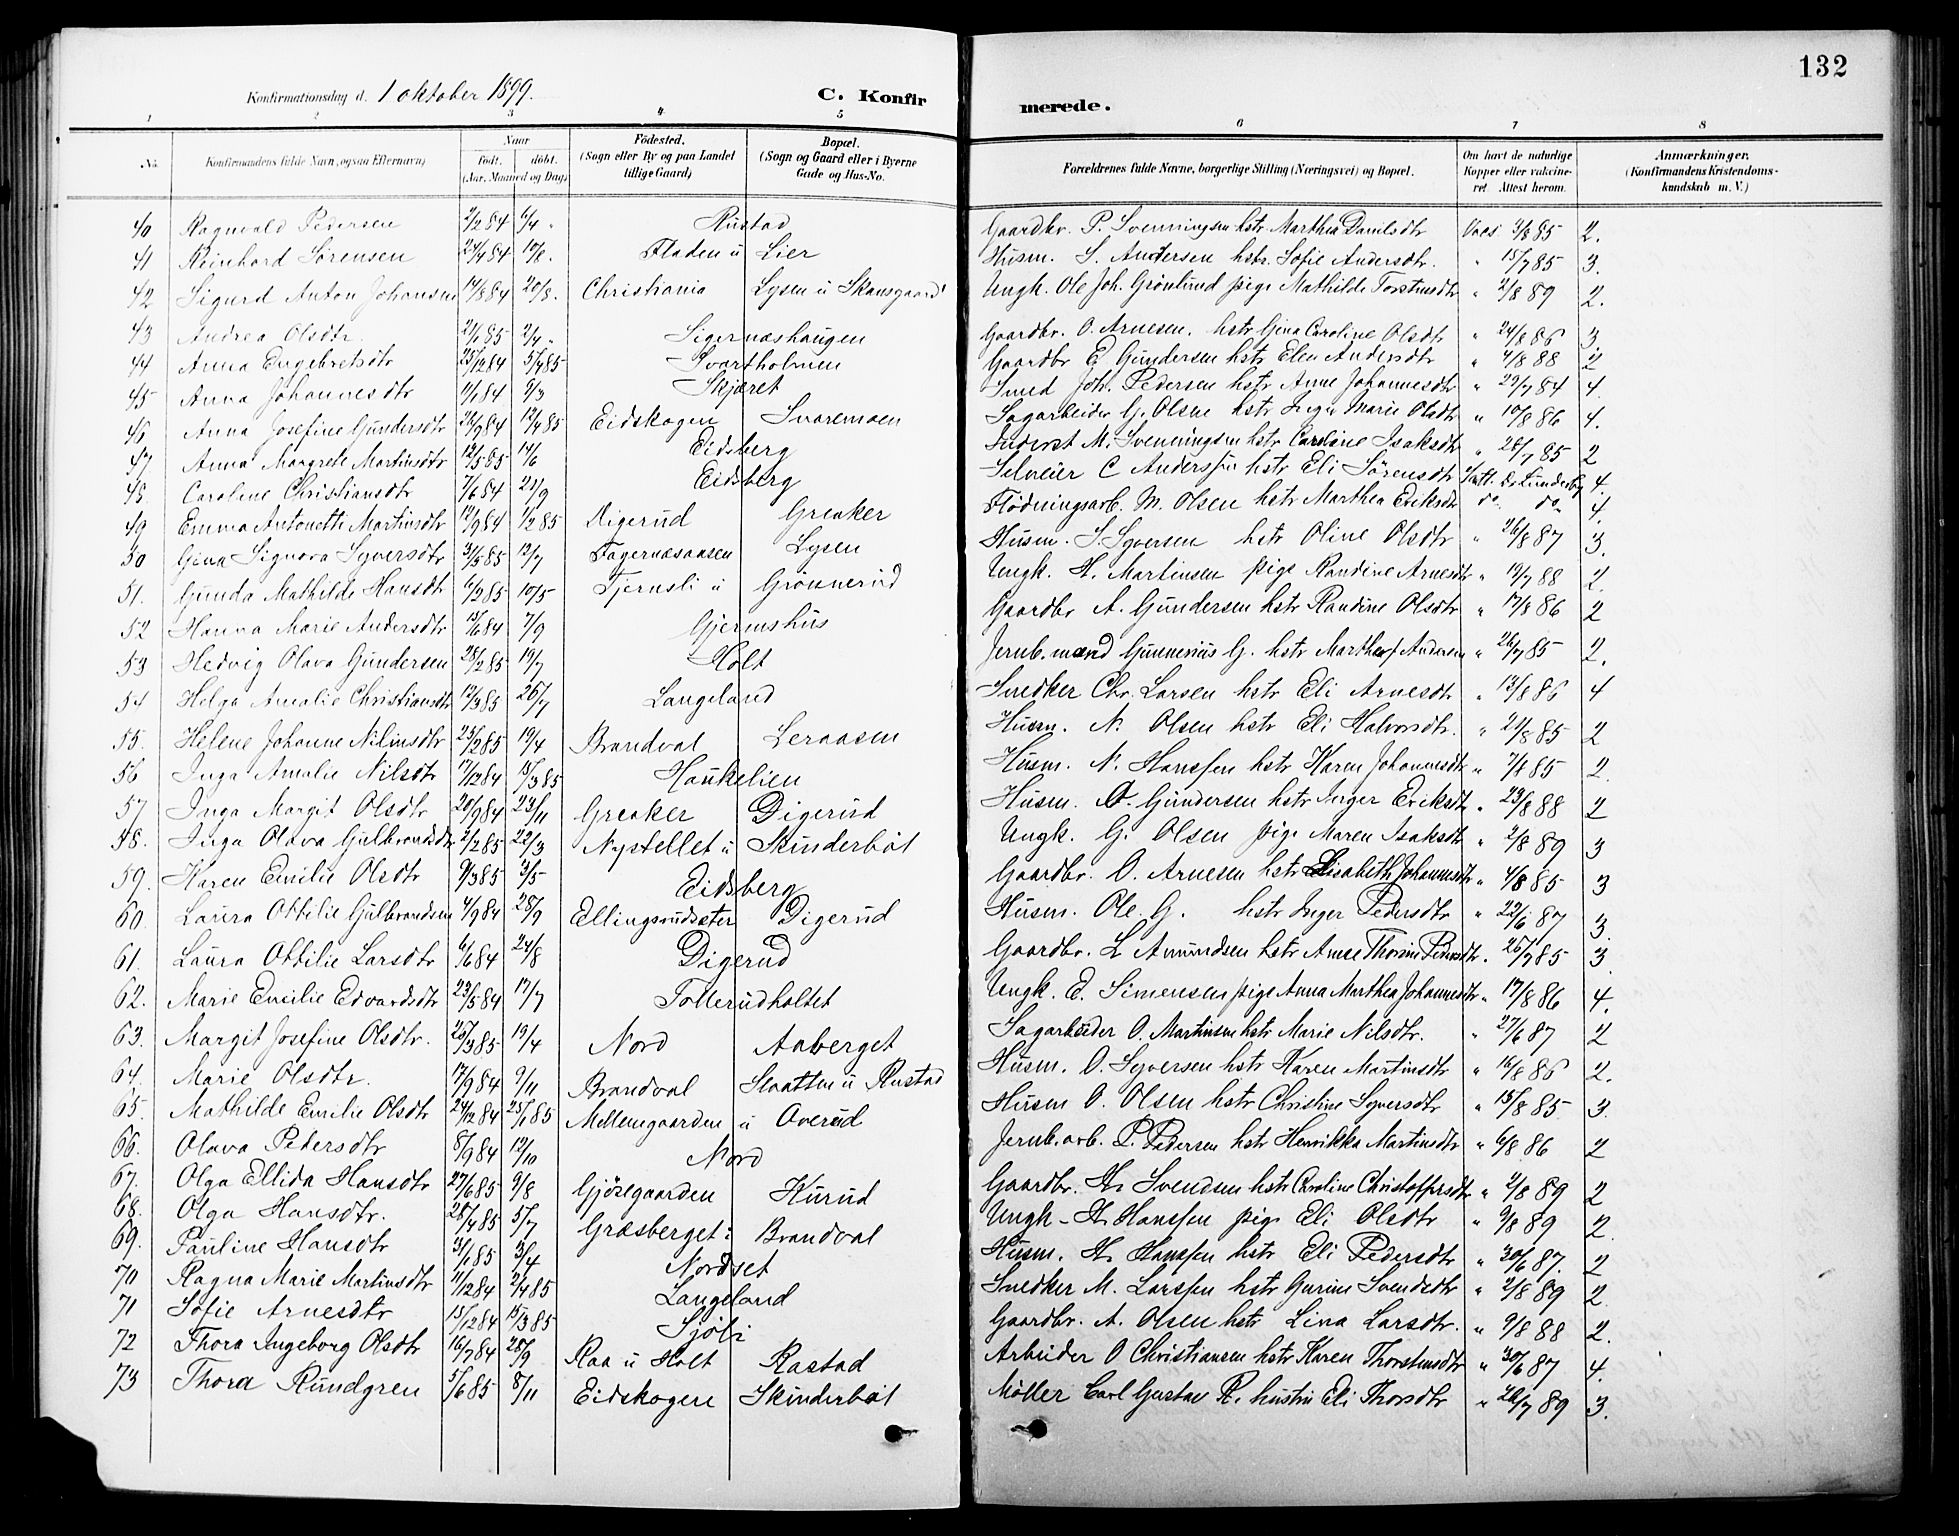 132
Konfirmationsdag d. 1 oktober 1899.
C. Konfirmerede.
1 2 3 4 5 6 7 8
No. Konfirmandens fulde Navn, ogsaa Efternavn) Naar født. døbt. (Aar, Maaned og Dag) Fødested. (Sogn eller By og paa Landet tillige Gaard) Bopæl. (Sogn og Gaard eller i Byerne Gade og Hus-No. Forældrenes fulde Navne, borgerlige Stilling (Næringsvei) og Bopæl. Om havt de naturlige Kopper eller vakcineret. Attest herom. Anmærkninger. (Konfirmandens Kristendomskundskab m. V.)
40 Ragnvald Pedersen 2/2 84 6/4 Rustad Gaardbr. P. Svenningsen hstr Marthea Danielsdtr Vacs. 3/8 85 2.
41 Reinhard Sørensen 24/4 84 10/8. Fladen u Lier Husm. S. Andersen hstr. Sofie Andersdtr. " 15/7 85 3.
42 Sigurd Anton Johansen 14/8 84 20/8. Christiania Lysen u Skansgaard Ungk. Ole Joh. Grønlund pige Mathilde Torstensdtr " 2/8 89 2.
43 Andrea Olsdtr. 21/1 85 2/4 Sigernæshaugen Gaardbr. O. Arnesen. hstr Gina Caroline Olsdtr " 24/8 86 3
44 Anna Engebretsdtr 25/12 84 5/4 85 Svartholmen Gaardbr E Gundersen hstr Elen Andersdtr " 4/8 88 2
45 Anna Johannesdtr 11/1 84 9/3 Skjæret Smed Joh. Pedersen hstr Anne Johannesdtr " 29/7 84 4.
46 Anna Josefine Gundersdtr 26/9 84 12/4 85 Eidskogen Svaremoen Sagarbeider G. Olsen hstr Inger Marie Olsdtr " 10/8 86 4.
47 Anna Margrete Martinsdtr 12/5 85 14/6 Eidsberg Inderst M. Svenningsen hstr Caroline Isaksdtr " 28/7 85 2
48 Caroline Christiansdtr 7/6 84 21/9 Eidsberg Selveier C Andersen hstr Eli Sørensdtr Dr Lunderby 4.
49 Emma Antonetti Martinsdtr 12/9 84 1/2 85 Digerud Greaker Flødningsarb. M. Olsen hstr Marthea Eriksdtr do do 4.
50 Gina Signora Syversdtr 31/5 85 12/7 Fagernæsaasen Lysen Husm. S. Syversen hstr Oline Olsdtr " 26/8 87 3.
51. Gunda Mathilde Hansdtr 6/2 85 10/5 Tjernsli u Grønnerud Ungk. H. Martinsen pige Randine Arnesdtr " 19/7 88 2.
52 Hanna Marie Andersdtr 15/6 84 7/9 Gjermshus Gaardbr A. Gundersen hstr Randine Olsdtr " 17/8 86 2
53 Hedvig Olava Gundersen 28/2 85 19/7 Holt Jernb.mand Gunnerius G. hstr Marthea Andersen " 26/7 85 2.
54 Helga Amalie Christiansdtr 12/3 85 26/7 Langeland Snedker Chr. Larsen hstr Eli Arnesdtr " 13/8 86 4
55. Helene Johanne Nilsdtr 25/2 85 19/4 Brandval Leraasen Husm. N. Olsen hstr Eli Halvorsdtr. " 21/8 85 2
56 Inga Amalie Nilsdtr 17/12 84 15/3 85 Haukelien Husm. N. Hanssen hstr Karen Johannesdtr " 7/8 85 2.
57 Inga Margit Olsdtr 20/9 84 23/11 Greaker Digerud Husm. O. Gundersen hstr Inger Eriksdtr " 23/8 88 2
58. Inga Olava Gulbrandsdtr 2/2 85 22/3 Nystellet u Skinderbøl Ungk. G. Olsen pige Maren Isaksdtr " 2/8 89 3
59. Karen Emilie Olsdtr 9/3 85 3/5 Eidsberg Gaardbr. O. Arnesen hstr Elisabeth Johannesdtr " 4/8 85 3
60. Laura Ottilie Gulbrandsen 4/9 84 28/9 Ellingsrudsæter Digerud Husm. Ole G. hstr Inger Pedersdtr " 22/6 87 3.
61. Laura Ottilie Larsdtr 6/6 84 24/8 Digerud Gaardbr. L Amundsen hstr Anne Thorine Pedersdtr. " 25/7 85 3
62. Marie Emilie Edvardsdtr 23/5 84 17/7 Tollerudholtet Ungk. E. Simensen pige Anna Marthea Johannesdtr " 17/8 86 4.
63. Margit Josefine Olsdtr. 26/3 85 19/4 Nord Aaberget Sagarbeider O. Martinsen hstr Marie Nilsdtr. " 27/6 87 2
64. Marie Olsdtr. 17/9 84 9/11 Brandval Slaatten u Rustad Husm. O. Syversen hstr Karen Martinsdtr " 16/8 86 2.
65. Mathilde Emilie Olsdtr 24/12 84 25/1 85 Mellemgaarden u Overud Husm O. Olsen hstr Christine Syversdtr " 15/8 85 3.
66. Olava Petersdtr 8/9 84 12/10 Nord Jernb.arb. P. Pedersen hstr Henrikka Martinsdtr " 6/8 86 2
67. Olga Ellida Hansdtr 27/6 85 9/8 Gjøsegaarden Kurud Gaardbr. H. Svendsen hstr Caroline Christoffersdtr " 2/8 89 2
68. Olga Hansdtr. 28/4 85 5/7 Græsberget i Brandval Ungk. H. Hanssen pige Eli Olsdtr " 9/8 89 2.
69. Pauline Hansdtr 31/1 85 3/4 Nordset Husm. H. Hanssen hstr Eli Pedersdtr " 30/6 87. 2
70 Ragna Marie Martinsdtr 11/12 84 2/4 85 Langeland Snedker M. Larssen hstr Gurine Svendsdtr " 2/8 89 2.
71 Sofie Arnesdtr 15/12 84 15/3 85 Sjøli Gaardbr. A. Olsen hstr Lina Larsdtr. " 9/8 88 2.
72 Thora Ingeborg Olsdtr 16/7 84 28/9 Raa u Holt Rastad Arbeider O Christiansen hstr Karen Thorstensdtr " 30/6 87 4.
73 Thora Rundgren 5/6 85 8/11 Eidskogen Skinderbøl Møller Carl Gustav R. hustru Eli Thorsdtr " 26/7 89 3.